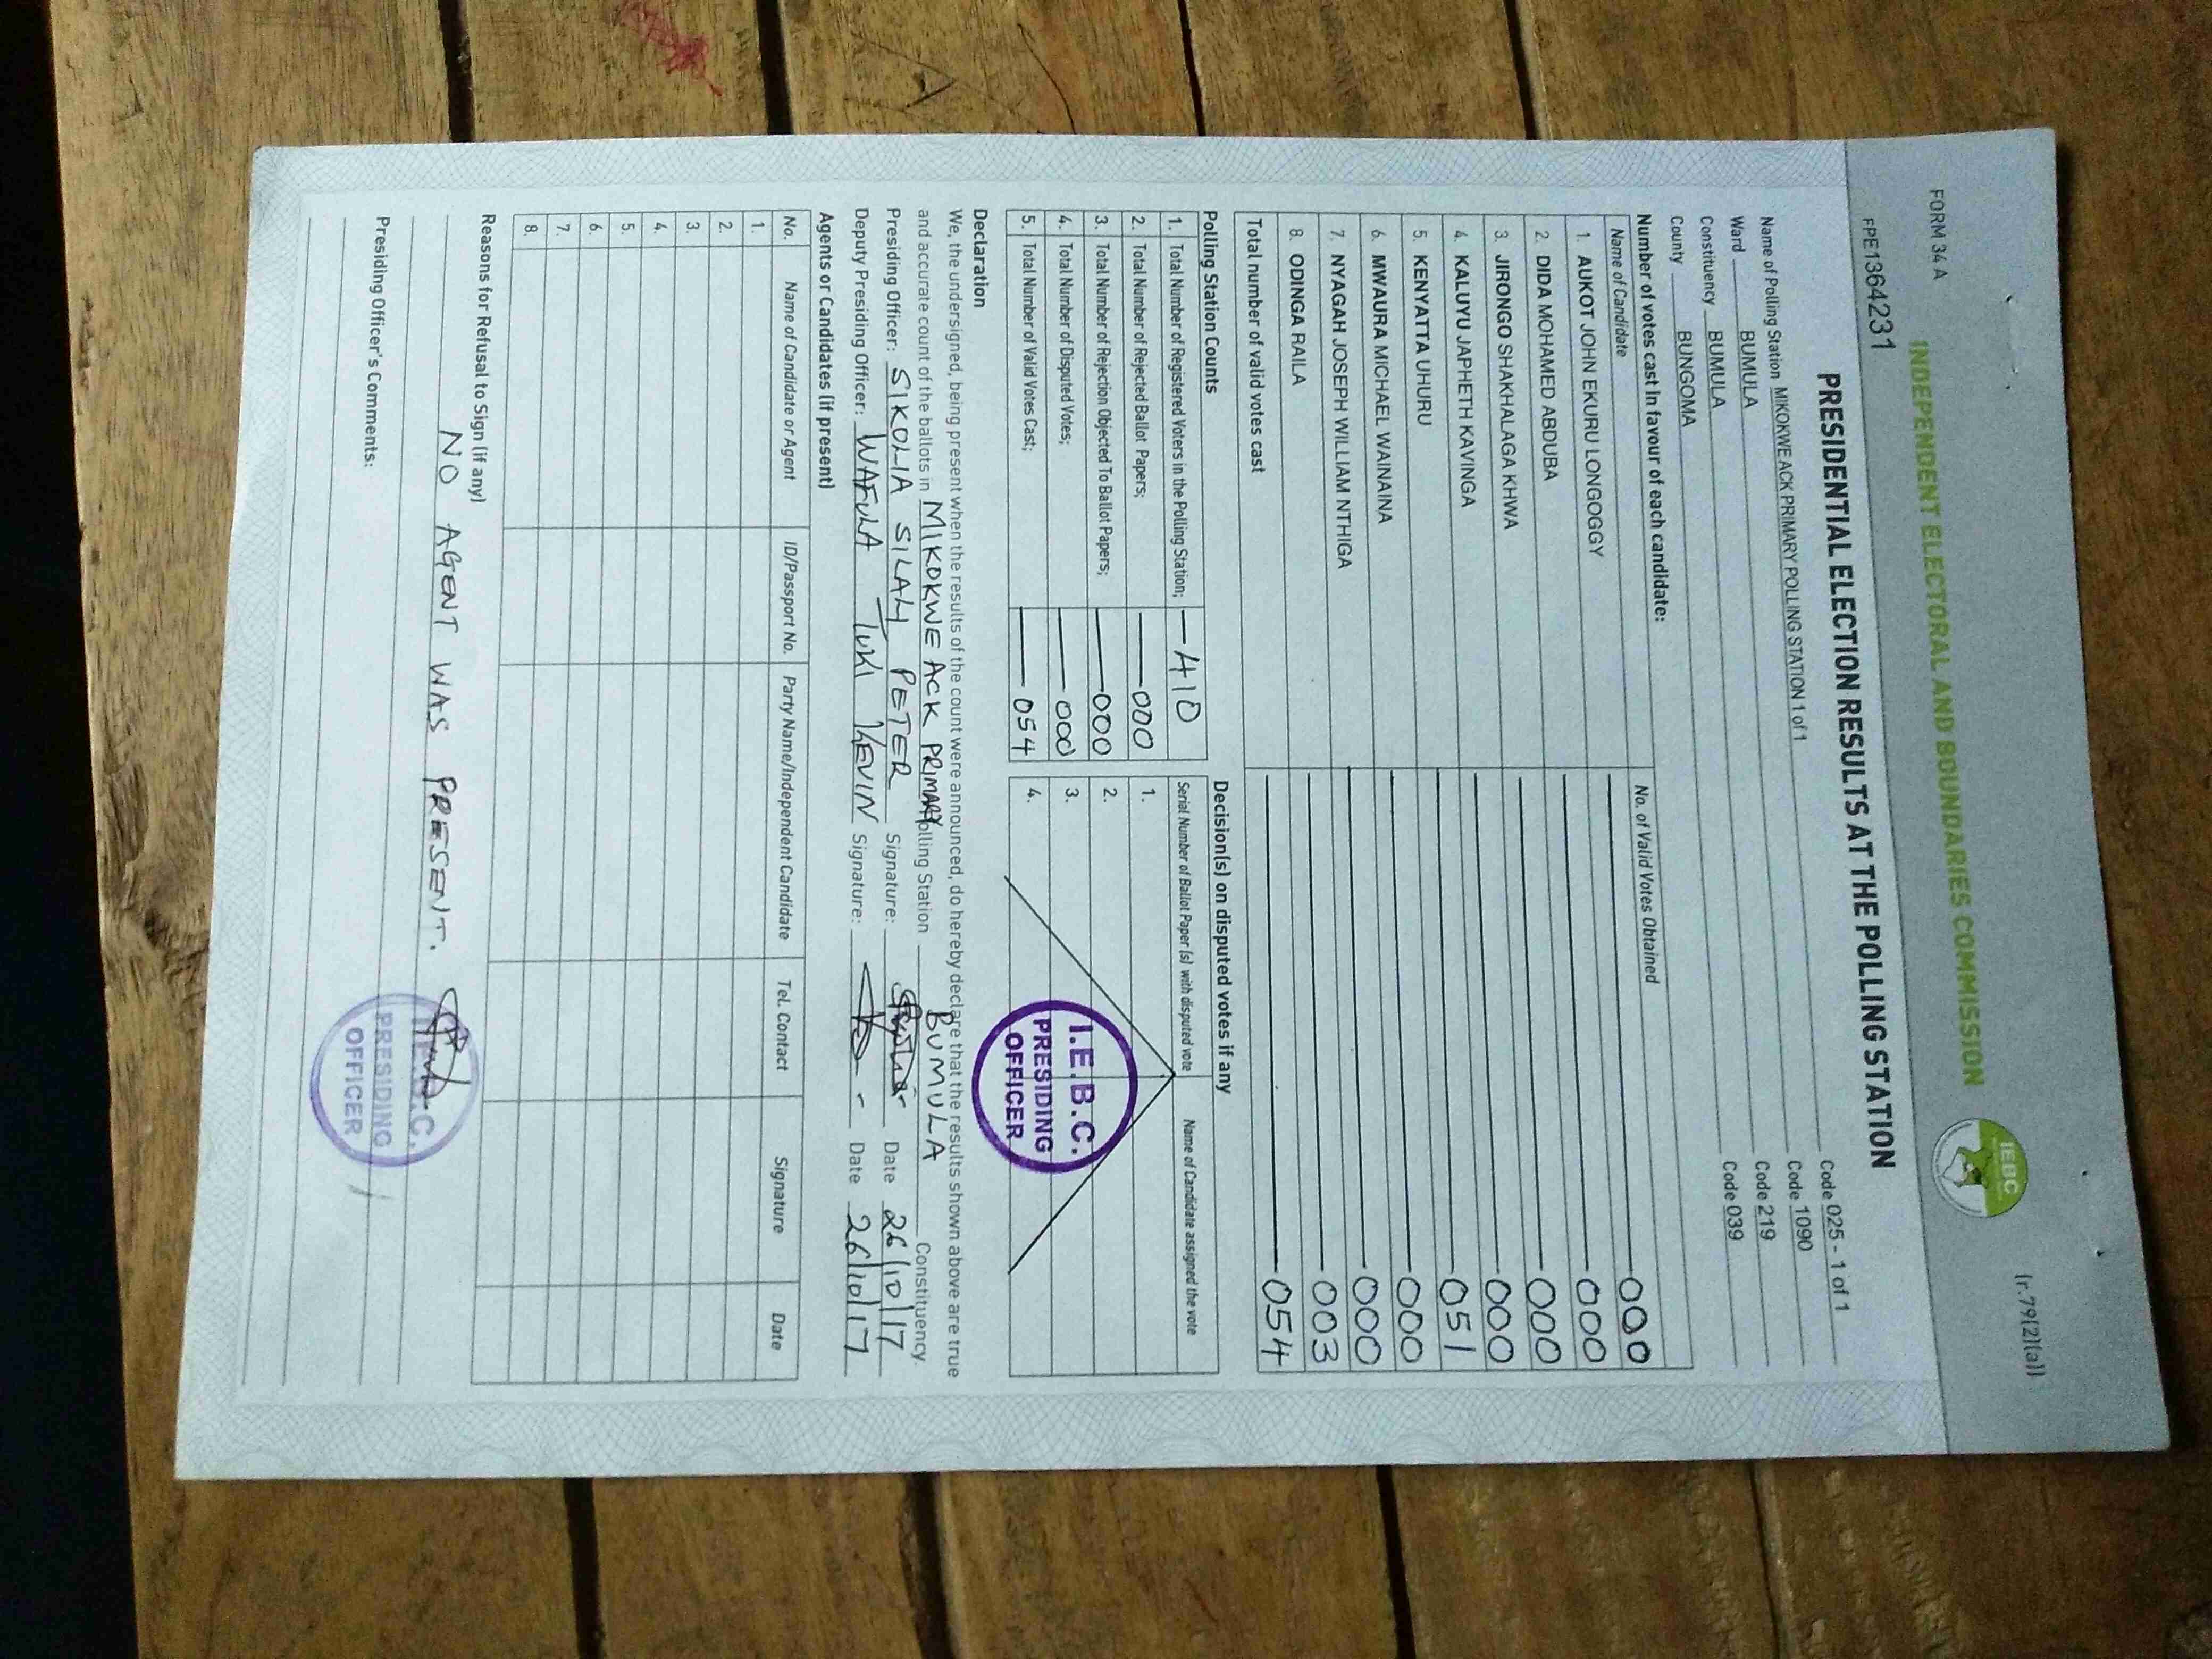 (r.79(2)(a))
FORM 34 A
INDEPENDENT ELECTORAL AND BOUNDARIES COMMISSION
IEBC
FPE136423 1
PRESIDENTIAL ELECTION RESULTS AT THE POLLING STATION
Name of Polling Station MIKOKWE ACK PRIMARY POLLING STATION 1 of 1 Code 025 - 1 of 1
Ward BUMULA Code 1090
Constituency BUMULA Code 219
County BUNGOMA Code 039
Number of votes cast in favour of each candidate:
Name of Candidate No. of Valid Votes Obtained
1. AUKOT JOHN EKURU LONGOGGY 000
2. DIDA MOHAMED ABDUBA 000
3. JIRONGO SHAKHALAGA KHWA 000
4. KALUYU JAPHETH KAVINGA 000
5. KENYATTA UHURU 051
6. MWAURA MICHAEL WAINAINA 000
7. NYAGAH JOSEPH WILLIAM NTHIGA 000
8. ODINGA RAILA 003
Total number of valid votes cast 054
Polling Station Counts
1. Total Number of Registered Voters in the Polling Station; 410
2. Total Number of Rejected Ballot Papers; 000
3. Total Number of Rejection Objected To Ballot Papers; 000
4. Total Number of Disputed Votes; 000
5. Total Number of Valid Votes Cast; 054
Decision(s) on disputed votes if any
Serial Number of Ballot Paper (s) with disputed vote Name of Candidate assigned the vote
1.
2.
3.
4.
I.E.B.C.
PRESIDING
OFFICER
Declaration
We, the undersigned, being present when the results of the count were announced, do hereby declare that the results shown above are true
and accurate count of the ballots in MIKOKWE ACK PRIMARY Polling Station BUMULA Constituency.
Presiding Officer: SIKOLIA SILAH PETER Signature: Date 26/10/17
Deputy Presiding Officer: WAFULA TUKI KEVIN Signature: Date 26/10/17
Agents or Candidates (if present)
No. Name of Candidate or Agent ID/Passport No. Party Name/Independent Candidate Tel. Contact Signature Date
1.
2.
3.
4.
5.
6.
7.
8.
Reasons for Refusal to Sign (if any)
NO AGENT WAS PRESENT.
Presiding Officer's Comments:
I.E.B.C.
PRESIDING
OFFICER